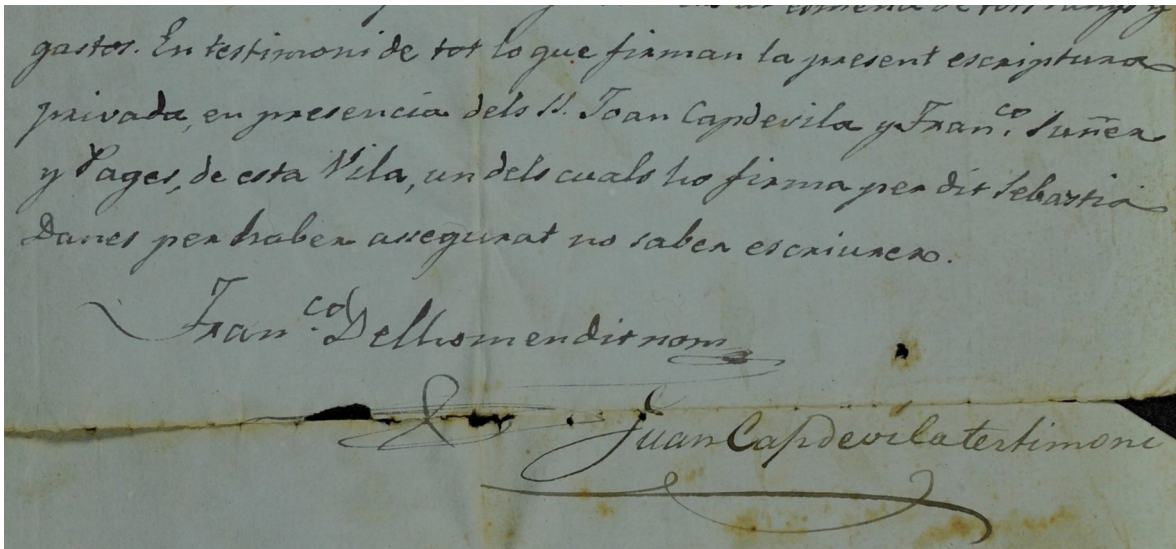 gastos. En testimoni de tot lo que firman la present escriptura
privada, en presencia dels S. Joan Capdevila y Fran.co Suñer
y Pages, de esta Vila, un dels cuals ho firma per dit Sebastiá
Danes per haber assegurat no saber escriurer.
Fran.co Dellhom en dit nom
Juan Capdevila testimoni